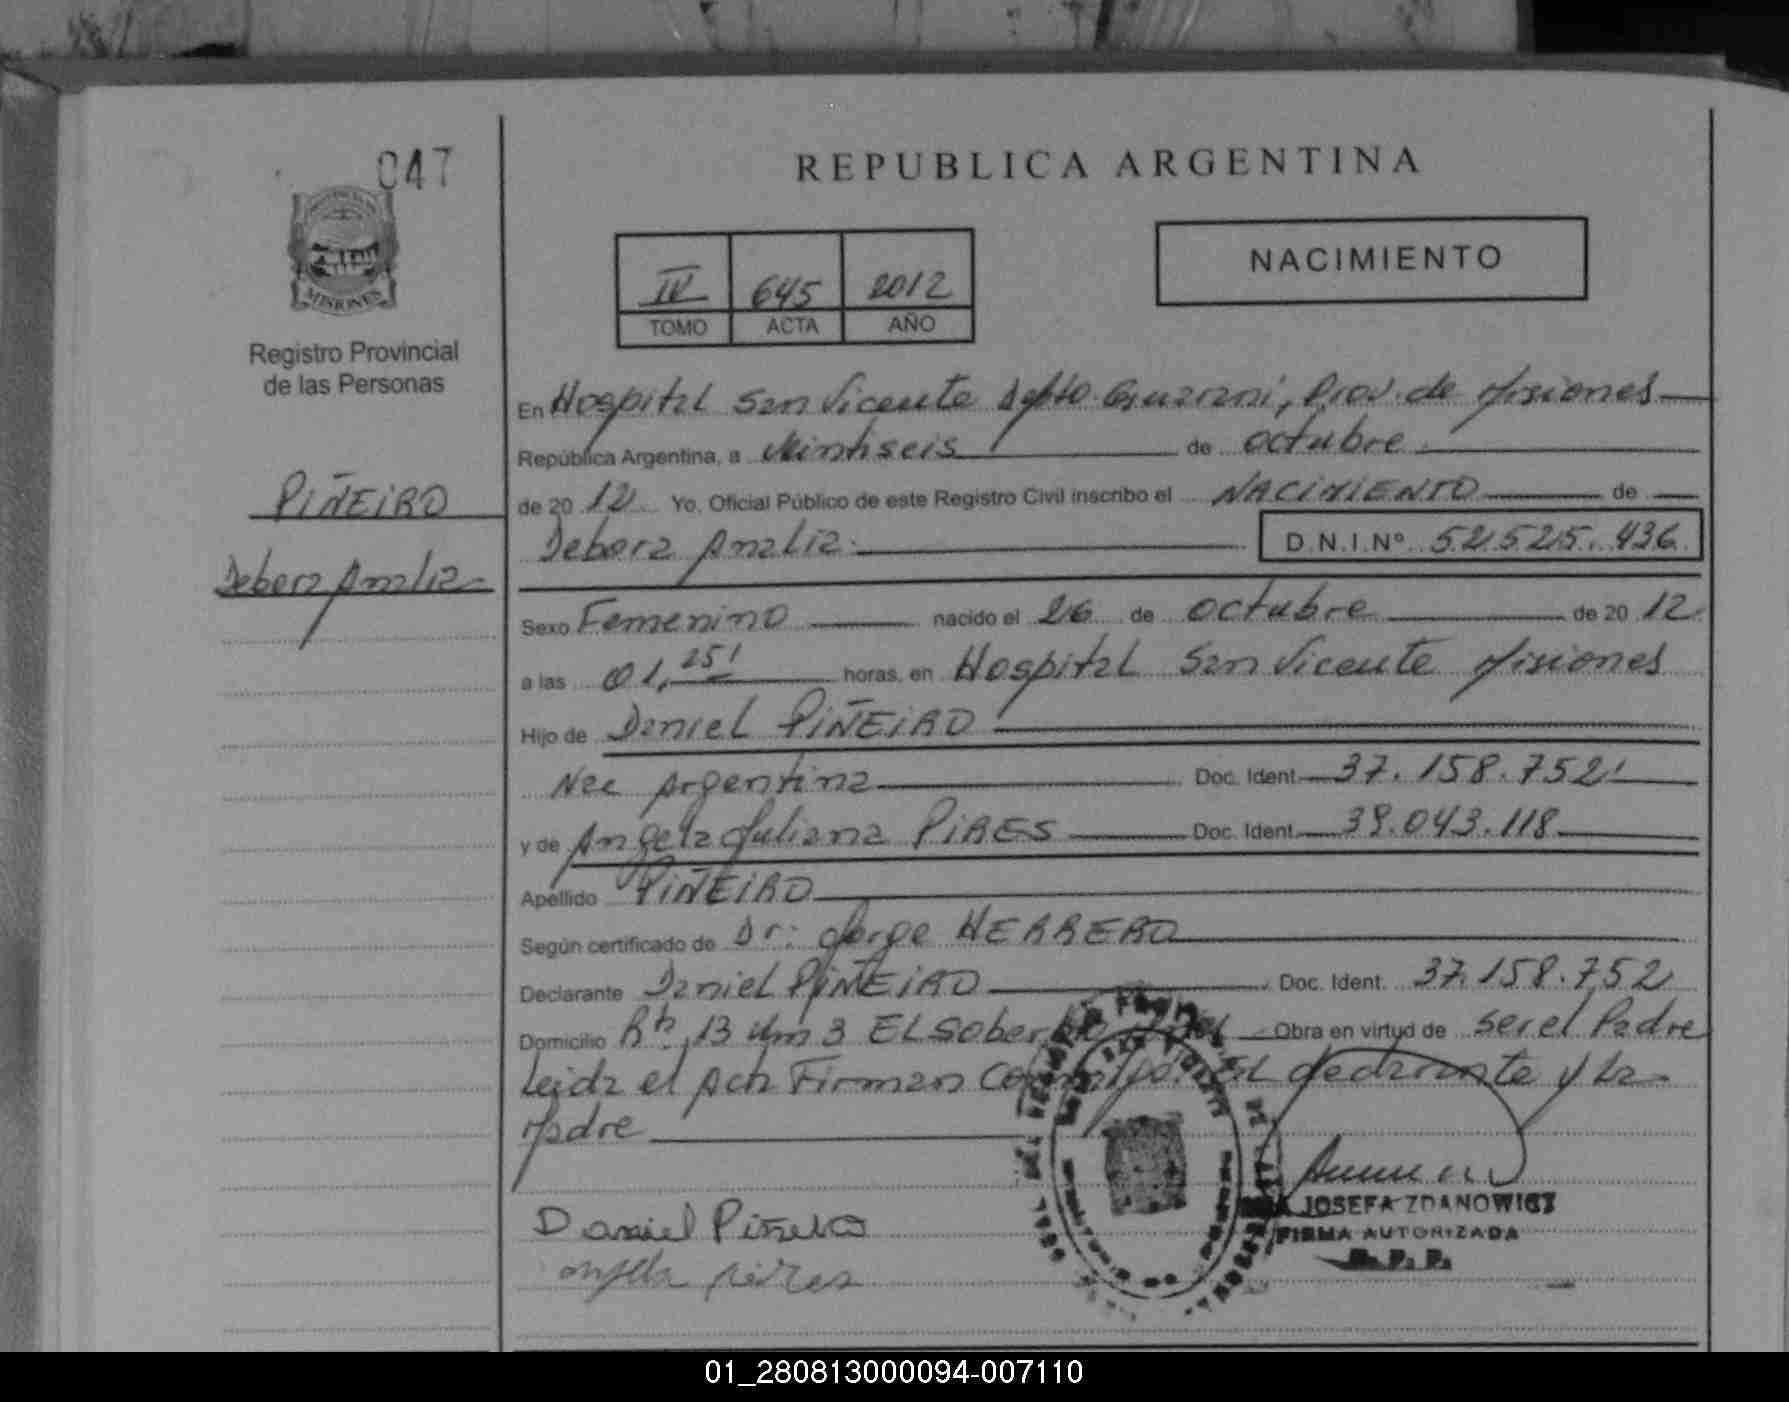 047
MISIONES
Registro Provincial
de las Personas
PIÑEIRO
Debora Analia
REPUBLICA ARGENTINA
IV 645 2012
TOMO ACTA AÑO
NACIMIENTO
En Hospital San Vicente Dpto. Guarani, Prov. de Misiones
República Argentina, a Veintiseis de octubre
de 20 12 Yo, Oficial Público de este Registro Civil inscribo el NACIMIENTO de
Debora Analia. D.N.I.Nº 52.525.436
Sexo Femenino nacido el 26 de octubre de 20 12.
a las 01,25' horas, en Hospital San Vicente Misiones
Hijo de Daniel PIÑEIRO
Nac Argentina Doc. Ident. 37.158.752
y de Angela Juliana PIRES Doc. Ident. 39.043.118
Apellido PIÑEIRO
Según certificado de Dr: Jorge HERRERO
Declarante Daniel PIÑEIRO Doc. Ident. 37.158.752
Domicilio 13 Km 3 EL Soberbio Obra en virtud de ser el Padre
Leida el Acta Firman Conmigo. EL declarante y La
Madre
Daniel Piñeiro
JOSEFA ZDANOWICZ
FIRMA AUTORIZADA
R. P. P.
01_280813000094-007110